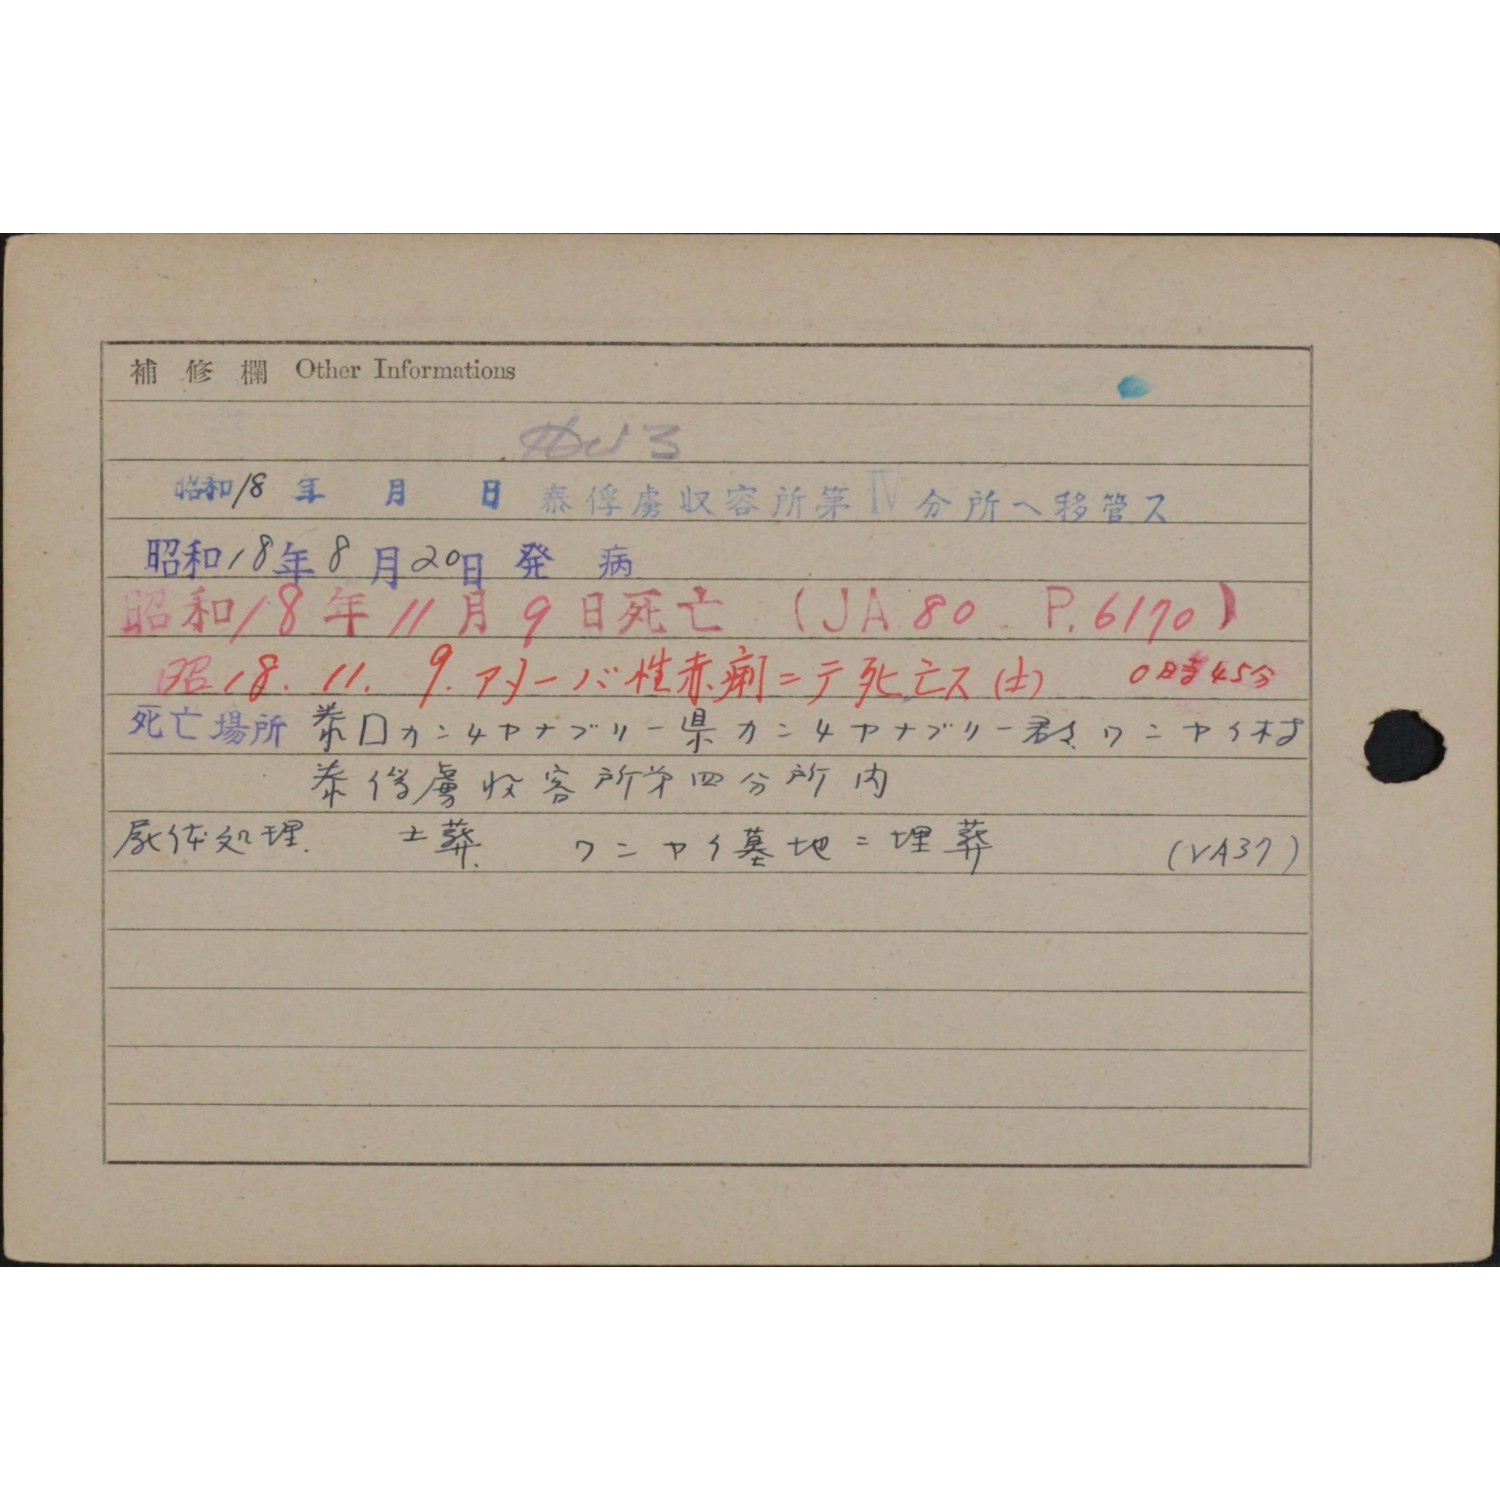 補修欄 Other Informations
昭和18年 月 日 泰俘虜収容所第IV分所へ移管ス
昭和18年8月20日 発病
昭和18年11月9日死亡 (JA 80 P. 6170)
昭18.11.9.アメーバ性赤痢ニテ死亡ス(土) 0時45分
死亡場所 泰囗カンチヤナブリー県カンチヤナブリー郡ワンヤイ村
泰俘虜収容所第四分所内
屍体処理. 土葬. ワンヤイ墓地ニ埋葬 (VA37)